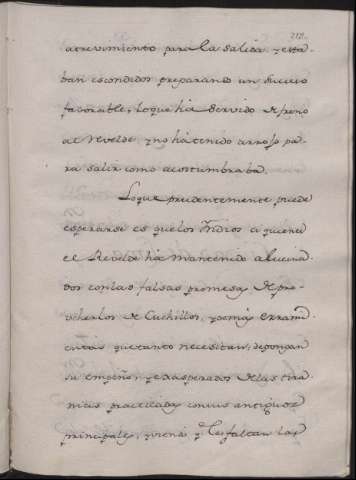 212.
atrevimiento para la salida, y esta-
ban escondidos preparando un suceso
favorable, loque ha servido de freno
al revelde, y no ha tenido arrojo pa-
ra salir como acostumbraba.
Loque prudentemente puede
esperarse es quelos Indios a quienes
el Revelde há mantenido alucina-
dos conlas falsas promesas de pro-
veherlos de Cuchillos, y demás erram.
entas quetanto necesitan, depongan
su empeño, y exasperados delas tira-
nias practicadas consus antiguos
principales, y viendo q.e les faltan las